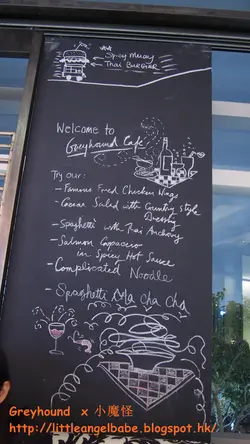 Spicy Muay
Thai Burger
Welcome to
Greyhound Cafe
Try our:
- Famous Fried Chicken Wings
- Caesar Salad with Country Style
Dressing
- Spaghetti with Thai Anchovy
- Salmon Capaccio
in Spicy Hot Sauce
- Complicated Noodle
- Spaghetti Cha Cha
Greyhound x 小魔怪
http://littleangelbabe.blogspot.hk/